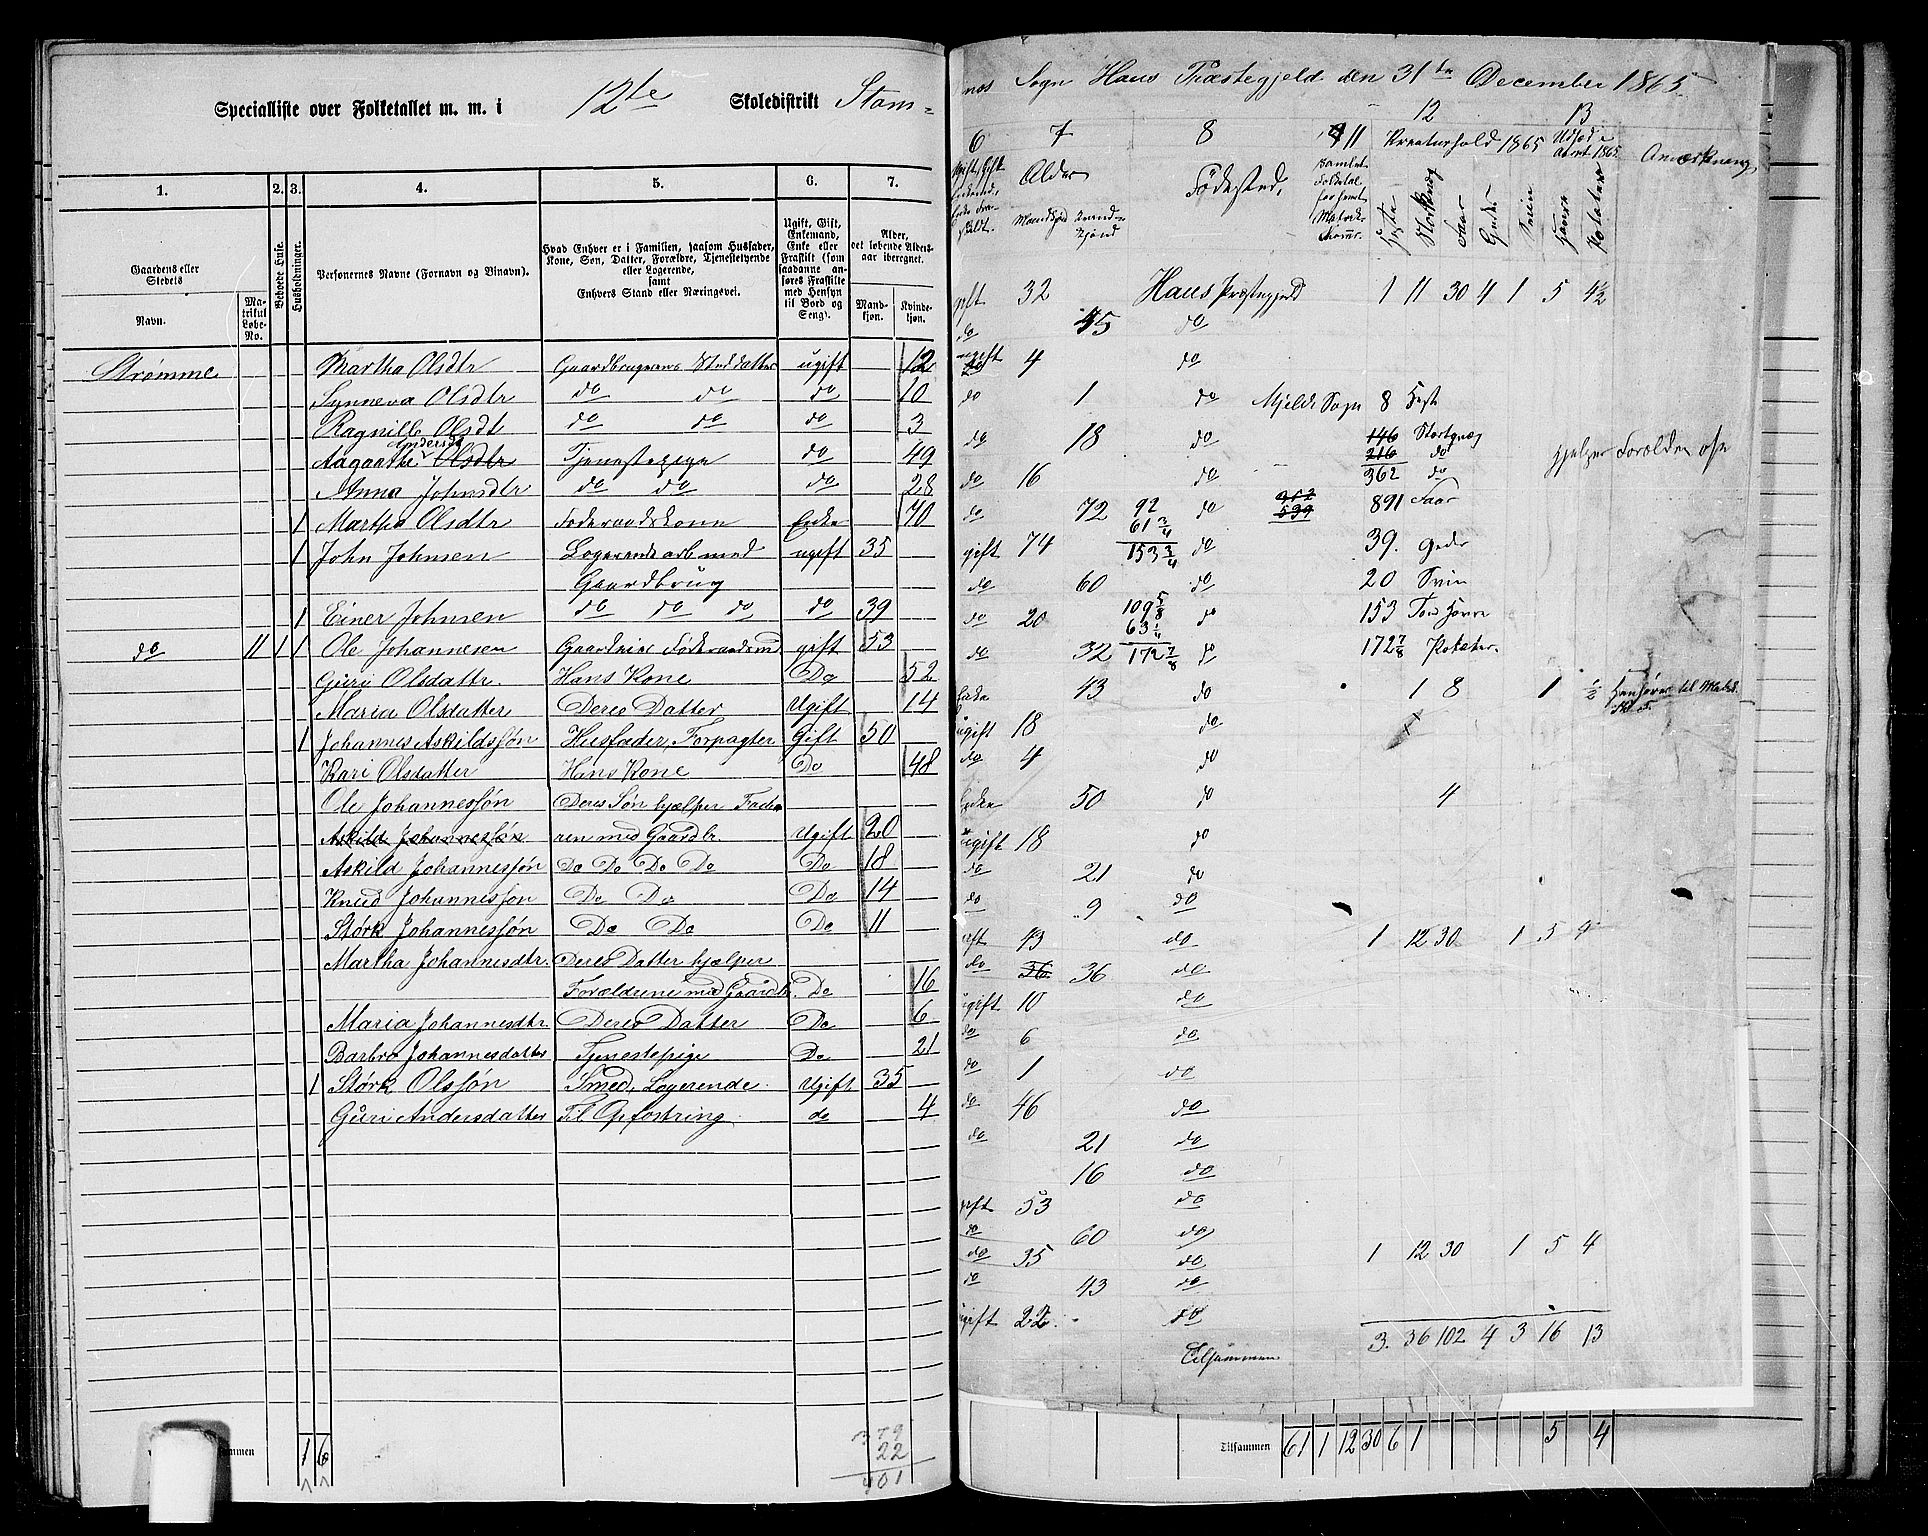 Specialliste over Folketallet m. m. i 12te Skoledistrikt Stam-
1. 2. 3. 4. 5. 6. 7.
Gaardens eller Stedets
Navn.
Matrikul Løbe-No.
Beboede Huse.
Husholdninger.
Personernes Navne (Fornavn og Binavn).
Hvad Enhver er i Familien, saasom Husfader, Kone, Søn, Datter, Forældre, Tjenestetyende eller Logerende, samt Enhvers Stand eller Næringsvei.
Ugift, Gift, Enkemand, Enke eller Fraskilt (som saadanne anføres Fraskilte med Hensyn til Bord og Seng).
Alder, det løbende Alders-aar iberegnet.
Mandkjøn. Kvindekjøn.
Strømme Martha Olsdtr Gaardbrugerens Steddatter ugift 12
Synneva Olsdtr do do do 10
Ragnille Olsdt do do do 3
Andersd
Aagaathe Olsdtr Tjenestepige do 49
Anna Johnsdtr do do do 28
1 Martha Olsdtr Føderaadskone Enke 70
1 John Johnsen Logerende arb med ugift 35
Gaardbrug
1 Einer Johnsen do do do do 39
do 11 1 1 Ole Johannesen Gaardeier Føderaadsmd gift 53
Guri Olsdattr. Hans Kone Do 52
Maria Olsdatter Deres Datter Ugift 14
1 Johannes Askildssøn Husfader, Forpagter Gift 50
Kari Olsdatter Hans Kone Do 48
Ole Johannessøn Deres Søn hjælper Fader
Askild Johannessøn ren med Gaardbr. Ugift 20
Askild Johannessøn Do Do Do Do Do 18
Knud Johannessøn Do Do Do 14
Størk Johannessøn Do Do Do 11
Martha Johannesdtr. Deres Datter hjælper
Forældrene med Gaardbr. Do 16
Maria Johannesdtr. Deres Datter Do 6
Barbro Johannesdatter Tjenestepige Do 21
1 Størk Olssøn Smed, Logerende Ugift 35
Guri Andersdatter Til Opfostring do 4
1 6
379
22
401
Sogn Haus Præstegjeld den 31te December 1865
6 7 8 11 12 13
Alder Fødested,
Mandkjøn Kvindkjønd
Samlet Folketal
Kreaturhold 1865 Udsæd Aaret 1865 Anmærkning
Heste Storkvæg Faar Geder Sviin Havre Potetes
gift 32 Haus Præstegjeld 1 11 30 4 1 5 4½
do 45 do
ugift 4 do
do 1 do Mjelde Sogn 8 Heste
do 18 do 146 Storkvæg
216 do
hjelper Forældre
do 16 do 362 do
do 72 92 do 352 539 891 Faar
61 3/4
gift 74 153 3/4 do 39. Geder
do 60 do 20 Svin
do 20 109 5/8 do 153 Tdr Havre
63 1/4
do 32 172 7/8 do 172 7/8 Poteter
Enke 43 do 1 8 1 ½ Henhører til Matr.
ugift 18 do
do 4 do
Enke 50 do 4
ugift 18 do
do 21 do
do 9 do
gift 43 do 1 12 30 1 5 4
do 36 36 do
ugift 10 do
do 6 do
do 1 do
do 46 do
do 21 do
16 do
gift 53 do
do 60 do
do 35 do 1 12 30 1 5 4
do 43 do
ugift 22 do
Tilsammen 3. 36 102 4 3 16 13
Tilsammen 61 1 12 30 6 1 5 4